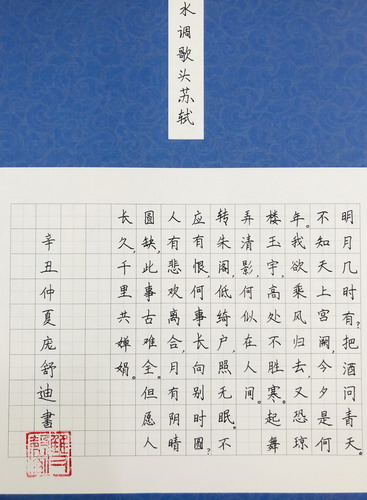 水调歌头苏轼
明月几时有?把酒问青天。
不知天上宫阙,今夕是何
年。我欲乘风归去,又恐琼
楼玉宇,高处不胜寒。起舞
弄清影,何似在人间。
转朱阁,低绮户,照无眠。不
应有恨,何事长向别时圆?
人有悲欢离合,月有阴晴
圆缺,此事古难全。但愿人
长久,千里共婵娟。
辛丑仲夏庞舒迪書